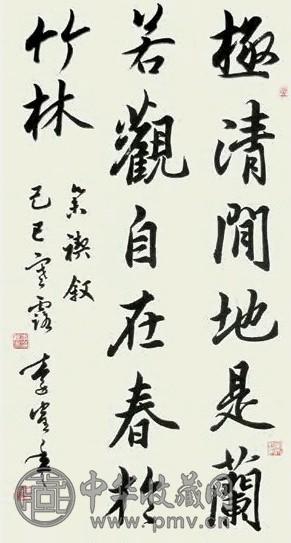 極清閒地是蘭
若觀自在春於
竹林
集禊敘
己巳寒露
李
中华收藏网
www.pmv.cn